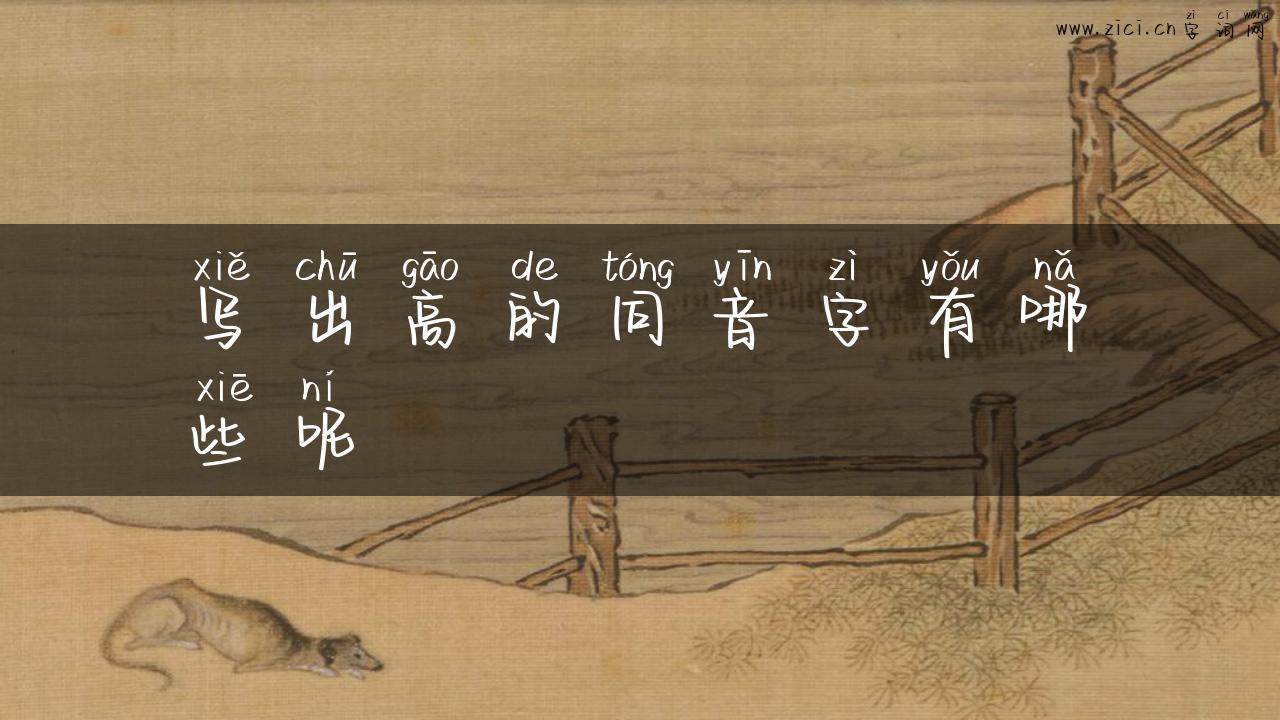 zì cí wǎng
www.zici.cn 字词网
xiě chū gāo de tóng yīn zì yǒu nǎ
写出高的同音字有哪
xiē ní
些呢